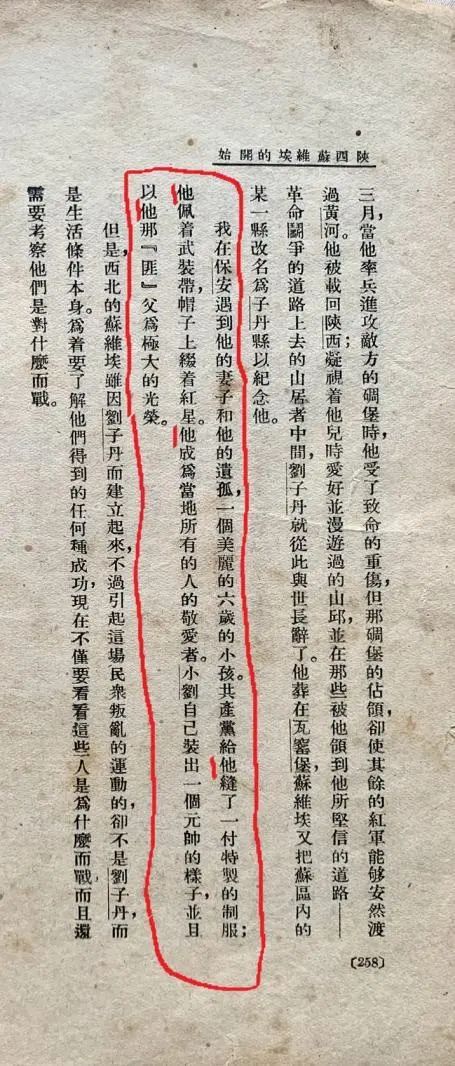 陝西蘇維埃的開始
三月，當他率兵進攻敵方的碉堡時，他受了致命的重傷，但那碉堡的佔領，卻使其餘的紅軍能夠安然渡
過黃河。他被載回陝西；凝視着他兒時愛好並漫遊過的山邱，並在那些被他領到他所堅信的道路——
革命鬭爭的道路上去的山居者中間，劉子丹就從此與世長辭了。他葬在瓦窰堡，蘇維埃又把蘇區內的
某一縣改名爲子丹縣以紀念他。
我在保安遇到他的妻子和他的遺孤，一個美麗的六歲的小孩。共產黨給他縫了一付特製的制服；
他佩着武裝帶，帽子上綴着紅星。他成爲當地所有的人的敬愛者。小劉自己裝出一個元帥的樣子，並且
以他那『匪』父爲極大的光榮。
但是，西北的蘇維埃雖因劉子丹而建立起來，不過引起這場民衆叛亂的運動的，卻不是劉子丹，而
是生活條件本身。爲着要了解他們得到的任何種成功，現在不僅要看看這些人是爲什麼而戰，而且還
需要考察他們是對什麼而戰。
〔258〕